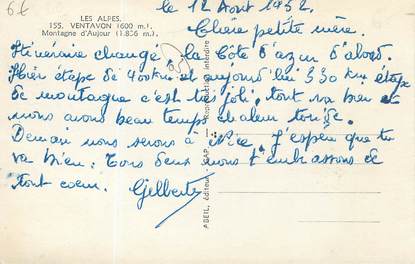 62
LES ALPES.
155. VENTAVON (600 m.).
Montagne d'Aujour (1.836 m.).
le 12 Aout 1952.
Chère petite mère.
Itinéraire changé, la Côte d'azur d'abord.
Hier étape de 400km et aujourd'hui 330 km étape
de montagne c'est très joli, tout va bien et
nous avons beau temps chaleur torride.
Demain nous serons à Nice. J'espère que tu
va bien. Tous deux nous t'embrassons de
tout coeur. Gilberte
ABEIL, éditeur - GAP. - Reproduction interdite